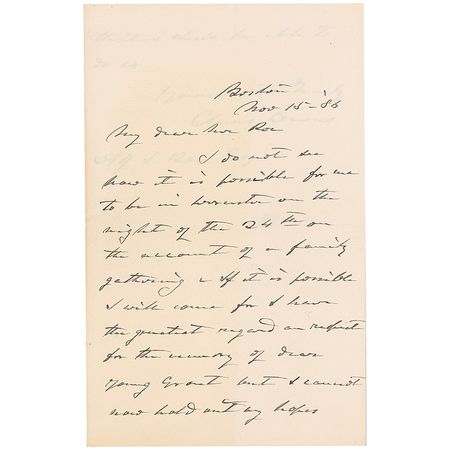 Boston
Nov 15-'86
My dear Mr Roe
I do not see
how it is possible for me
to be in Worcester on the
night of the 24th on
the account of a family
gathering & If it is possible
I will come for I have
the greatest regard an respect
for the memory of dear
young Grout but I cannot
now hold out any hopes